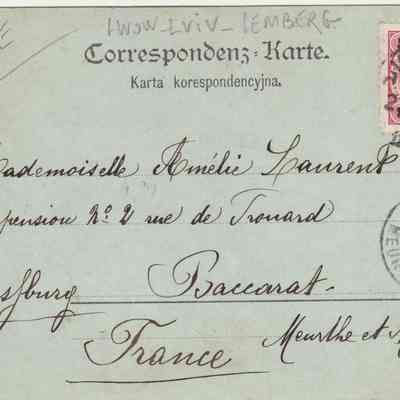 LWOW_LVIV_LEMBERG
Correspondenz-Karte.
Karta korespondencyjna.
ademoiselle Amélie Laurent
pension No. 2 rue de Trouard
Baccarat
France Meurthe et M